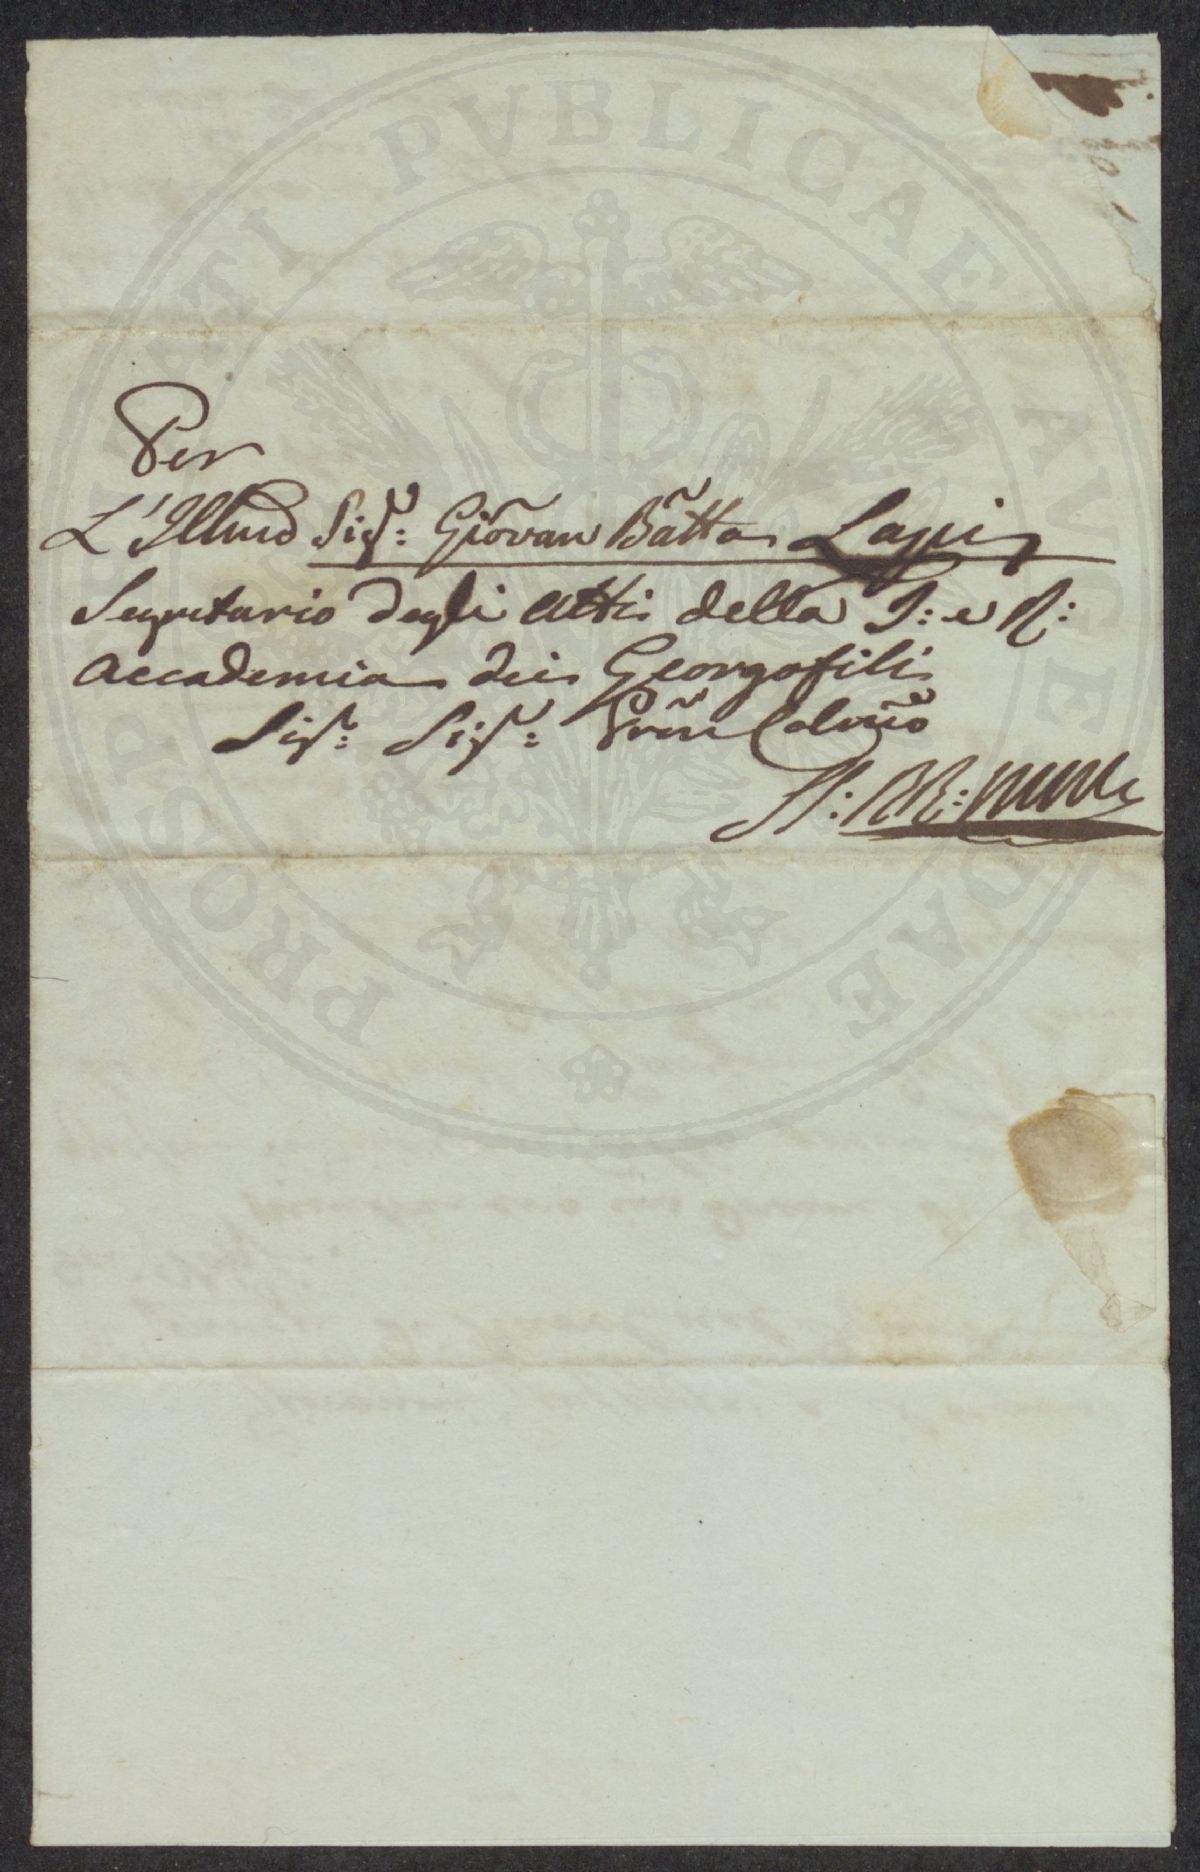 PROSPERITATI PVBLICAE AVGENDAE
Per
L'Illmo Sig.: Giovan Batta Lapi
Segretario degli Atti della I: e R:
Accademia dei Georgofili
Sig: Sig: Pron Colmo